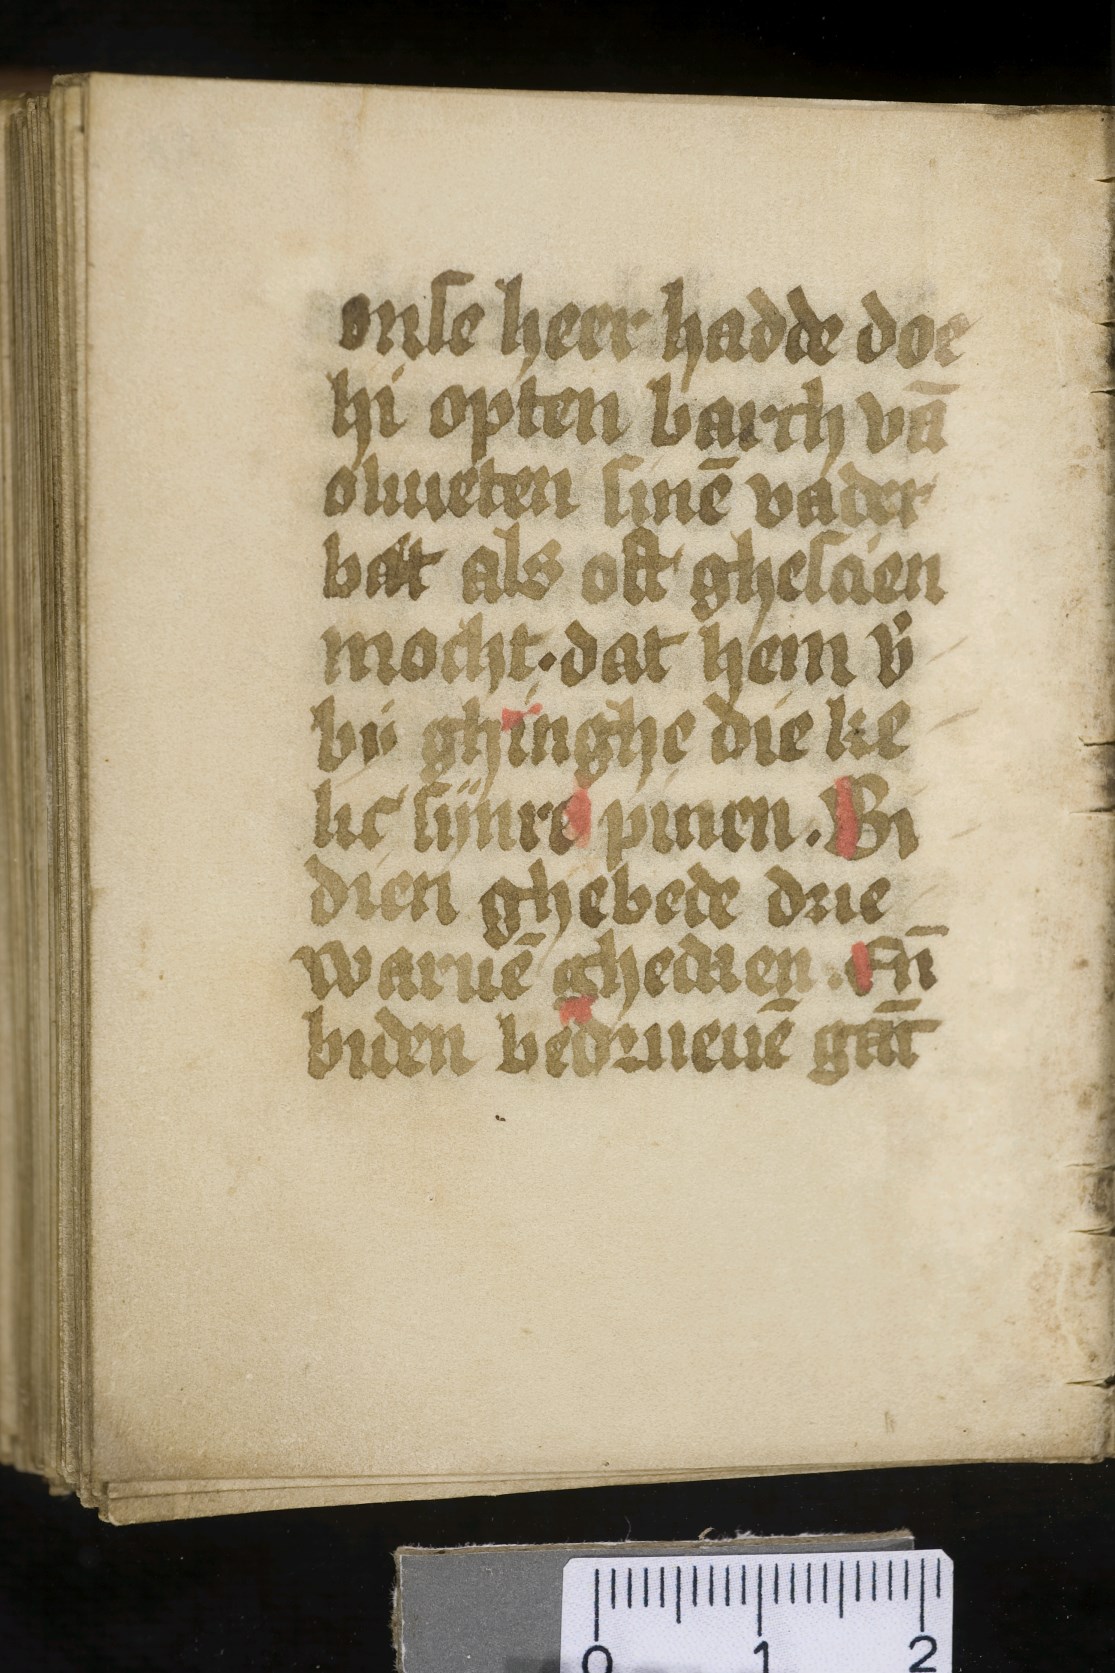 onse heer hadde doe
hi opten barch vā
oliueten sinē vader
bat als oft ghescien
mocht. dat hem v̄
bij ghinghe die ke
lic sijnre pinen. Bi
dien ghebede drie
waruē ghedaen. Eñ
biden bedrueuē
0 1 2